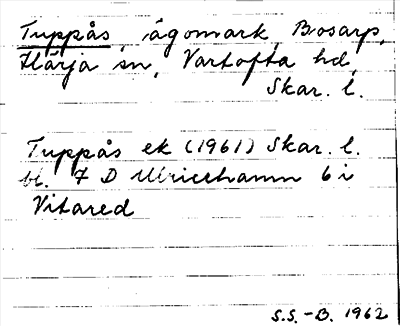 Tuppås, ägomark, Bosarp,
Härja sn, Vartofta hd,
Skar. l.
Tuppås ek (1961) Skar. l.
bl. 7 D Ulricehamn 6 i
Vitared
S.S.-B. 1962